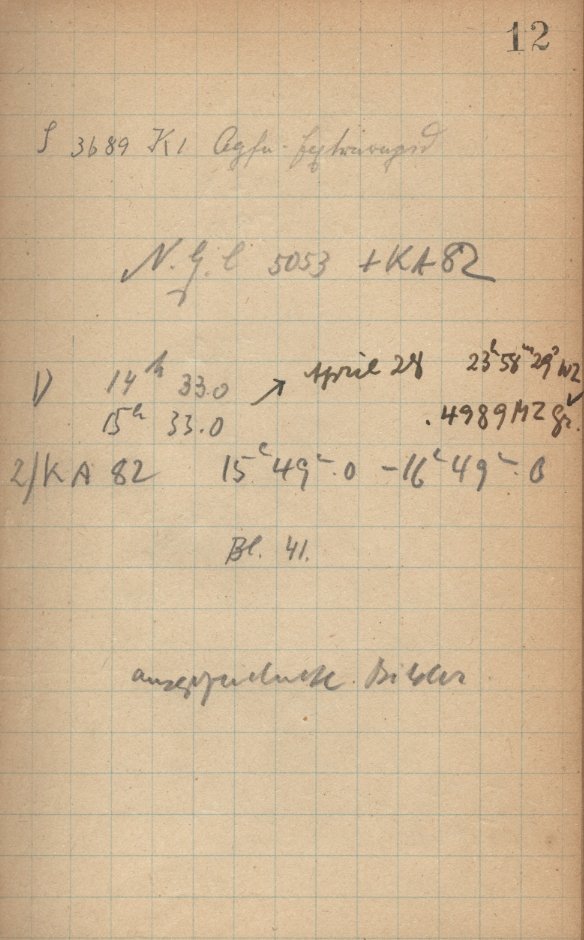 12
S 3689 K1 Agfa-Extrarapid
N.G.C 5053 + KA 82
1) 14h 33.0 ↗ April 28 23h 58m 29s WZ
15h 33.0 .4989 MZ Gr.
2) KA 82 15h 49m.0 - 16h 49m.0
Bl. 41.
ausgezeichnete Bilder